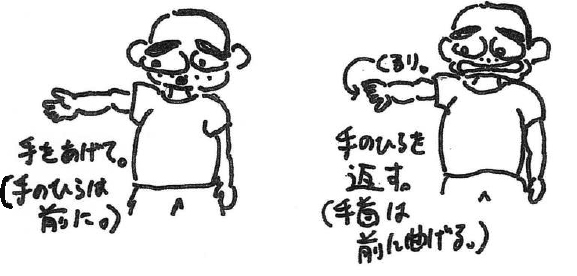 手をあげて。
(手のひらは
前に。)
くるり。
手のひらを
返す。
(手首は
前に曲げる。)